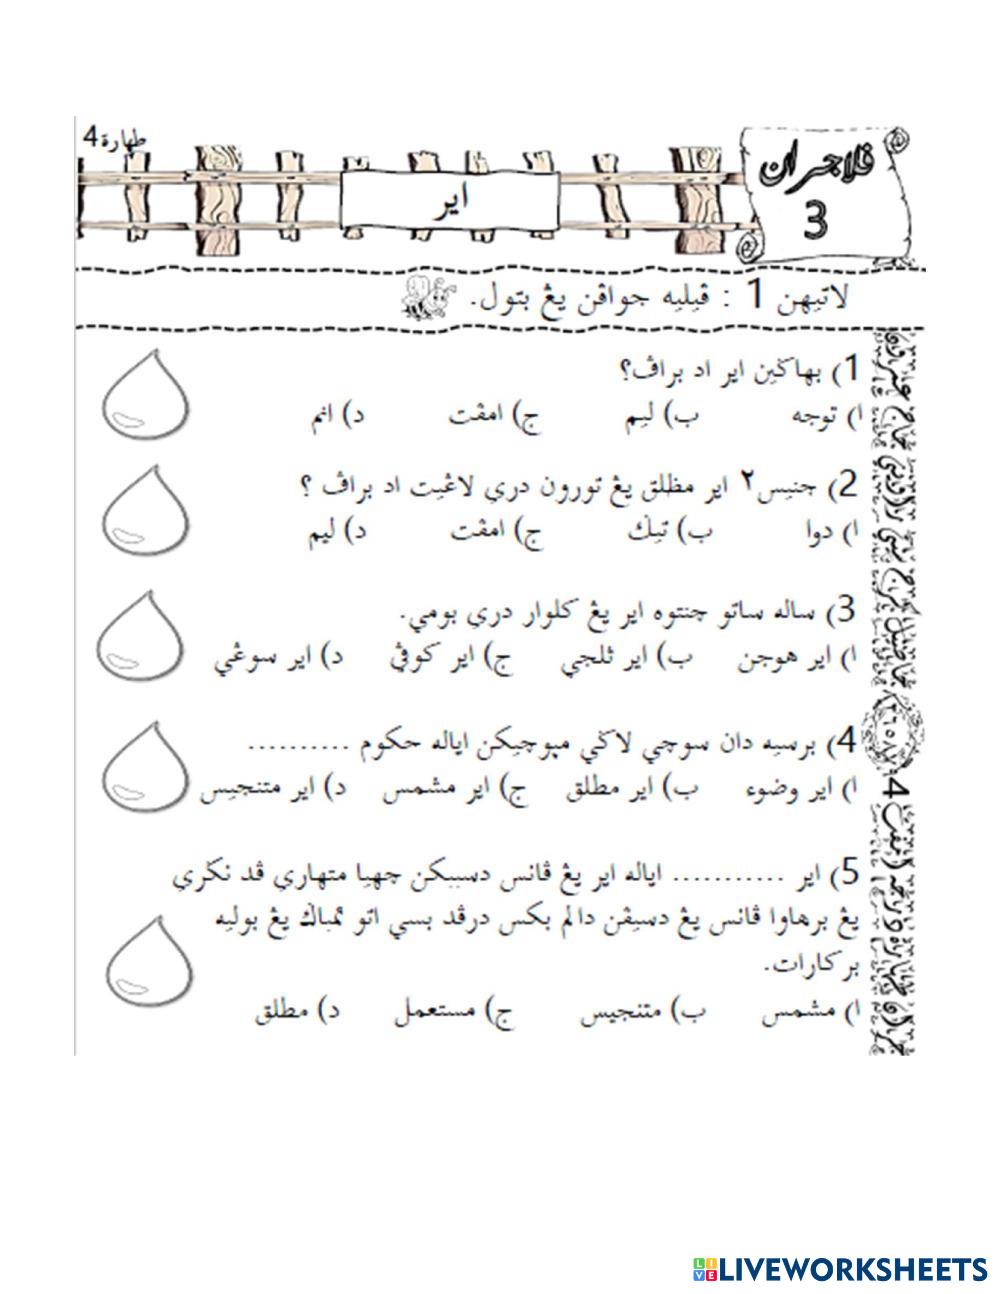 طهارة 4
ڤلاجرن
3
اير
لاتيهن 1 : ڤيليه جواڤن يڠ بتول.
1) بهاݢين اير اد براڤ؟
ا) توجه ب) ليم ج) امڤت د) انم
2) جنيس٢ اير مظلق يڠ تورون دري لاڠيت اد براڤ ؟
ا) دوا ب) تيݢ ج) امڤت د) ليم
3) ساله ساتو چنتوه اير يڠ كلوار دري بومي.
ا) اير هوجن ب) اير ثلجي ج) اير كوڤي د) اير سوڠي
4) برسيه دان سوچي لاݢي مڽوچيكن اياله حكوم ..........
ا) اير وضوء ب) اير مطلق ج) اير مشمس د) اير متنجيس
5) اير ........... اياله اير يڠ ڤانس دسببكن چهيا متهاري ڤد نݢري
يڠ برهاوا ڤانس يڠ دسيڤن دالم بكس درڤد بسي اتو تمباݢ يڠ بوليه
بركارات.
ا) مشمس ب) متنجيس ج) مستعمل د) مطلق
LIVEWORKSHEETS